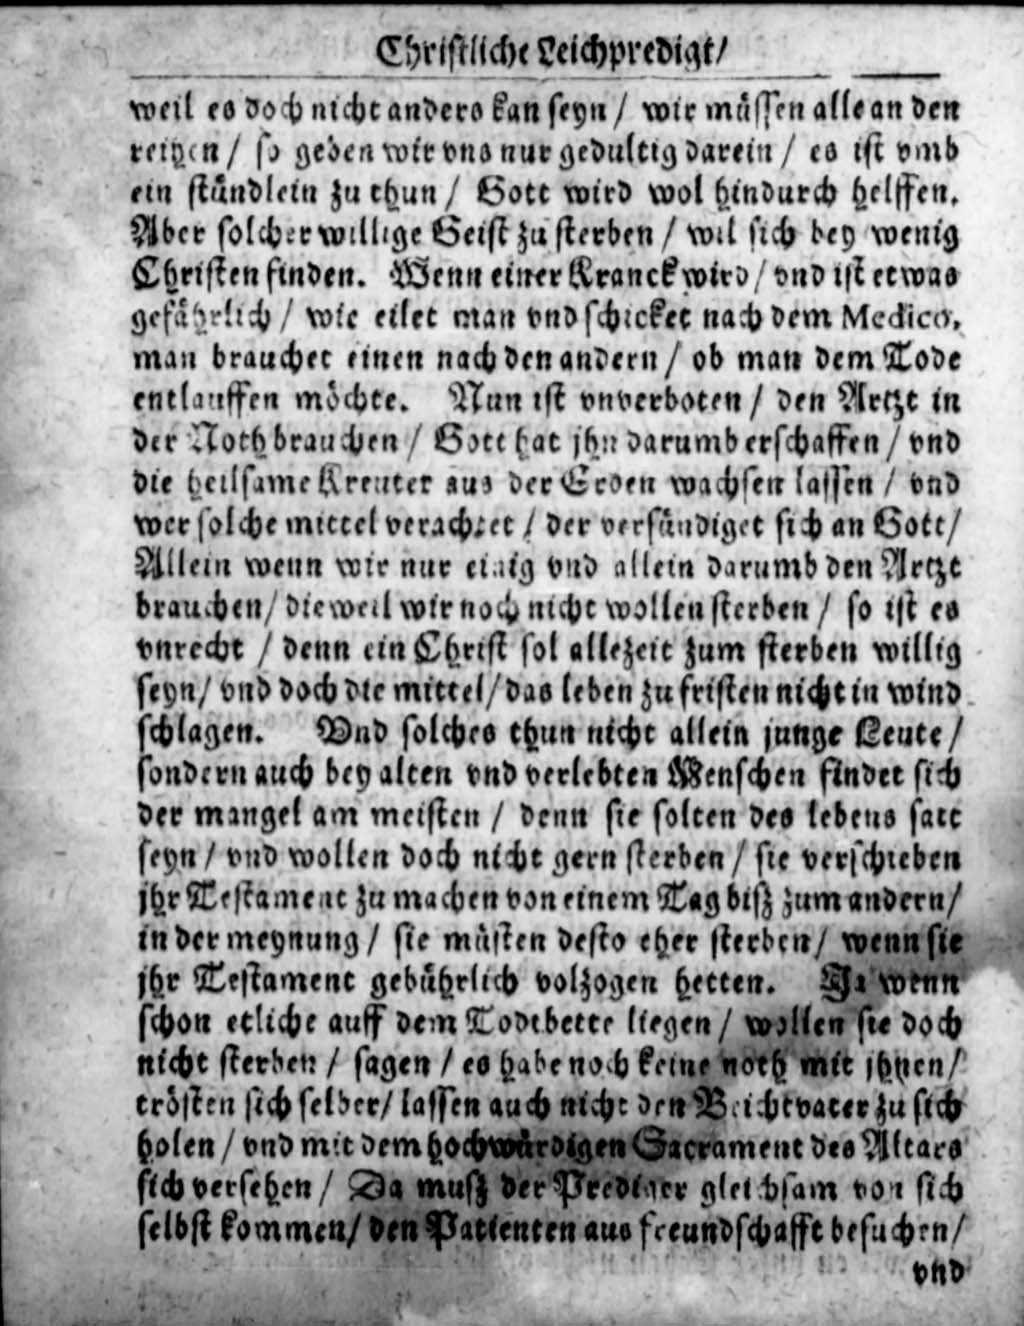 Christliche Leichpredigt/
weil es doch nicht anders kan seyn / wir müssen alle an den
reihen / so geben wir vns nur gedultig darein / es ist vmb
ein stündlein zu thun / Gott wird wol hindurch helffen.
Aber solcher willige Geist zu sterben / wil sich bey wenig
Christen finden. Wenn einer Kranck wird / vnd ist etwas
gefährlich / wie eilet man vnd schicket nach dem Medico,
man brauchet einen nach den andern / ob man dem Tode
entlauffen möchte. Nun ist vnverboten / den Artzt in
der Noth brauchen / Gott hat jhn darumb erschaffen / vnd
die heilsame Kreuter aus der Erden wachsen lassen / vnd
wer solche mittel verachtet / der versündiget sich an Gott/
Allein wenn wir nur einig vnd allein darumb den Artzt
brauchen/ dieweil wir noch nicht wollen sterben / so ist es
vnrecht / denn ein Christ sol allezeit zum sterben willig
seyn/ vnd doch die mittel/ das leben zu fristen nicht in wind
schlagen. Vnd solches thun nicht allein junge Leute /
sondern auch bey alten vnd verlebten Menschen findet sich
der mangel am meisten / denn sie solten des lebens satt
seyn / vnd wollen doch nicht gern sterben / sie verschieben
jhr Testament zu machen von einem Tag bisz zum andern/
in der meynung / sie müsten desto eher sterben/ wenn sie
jhr Testament gebührlich volzogen hetten. Ja wenn
schon etliche auff dem Todtbette liegen / wollen sie doch
nicht sterben / sagen / es habe noch keine noth mit jhnen/
trösten sich selber/ lassen auch nicht den Beichtvater zu sich
holen / vnd mit dem hochwürdigen Sacrament des Altars
sich versehen / Da musz der Prediger gleichsam von sich
selbst kommen/ den Patienten aus freundschafft besuchen/
vnd